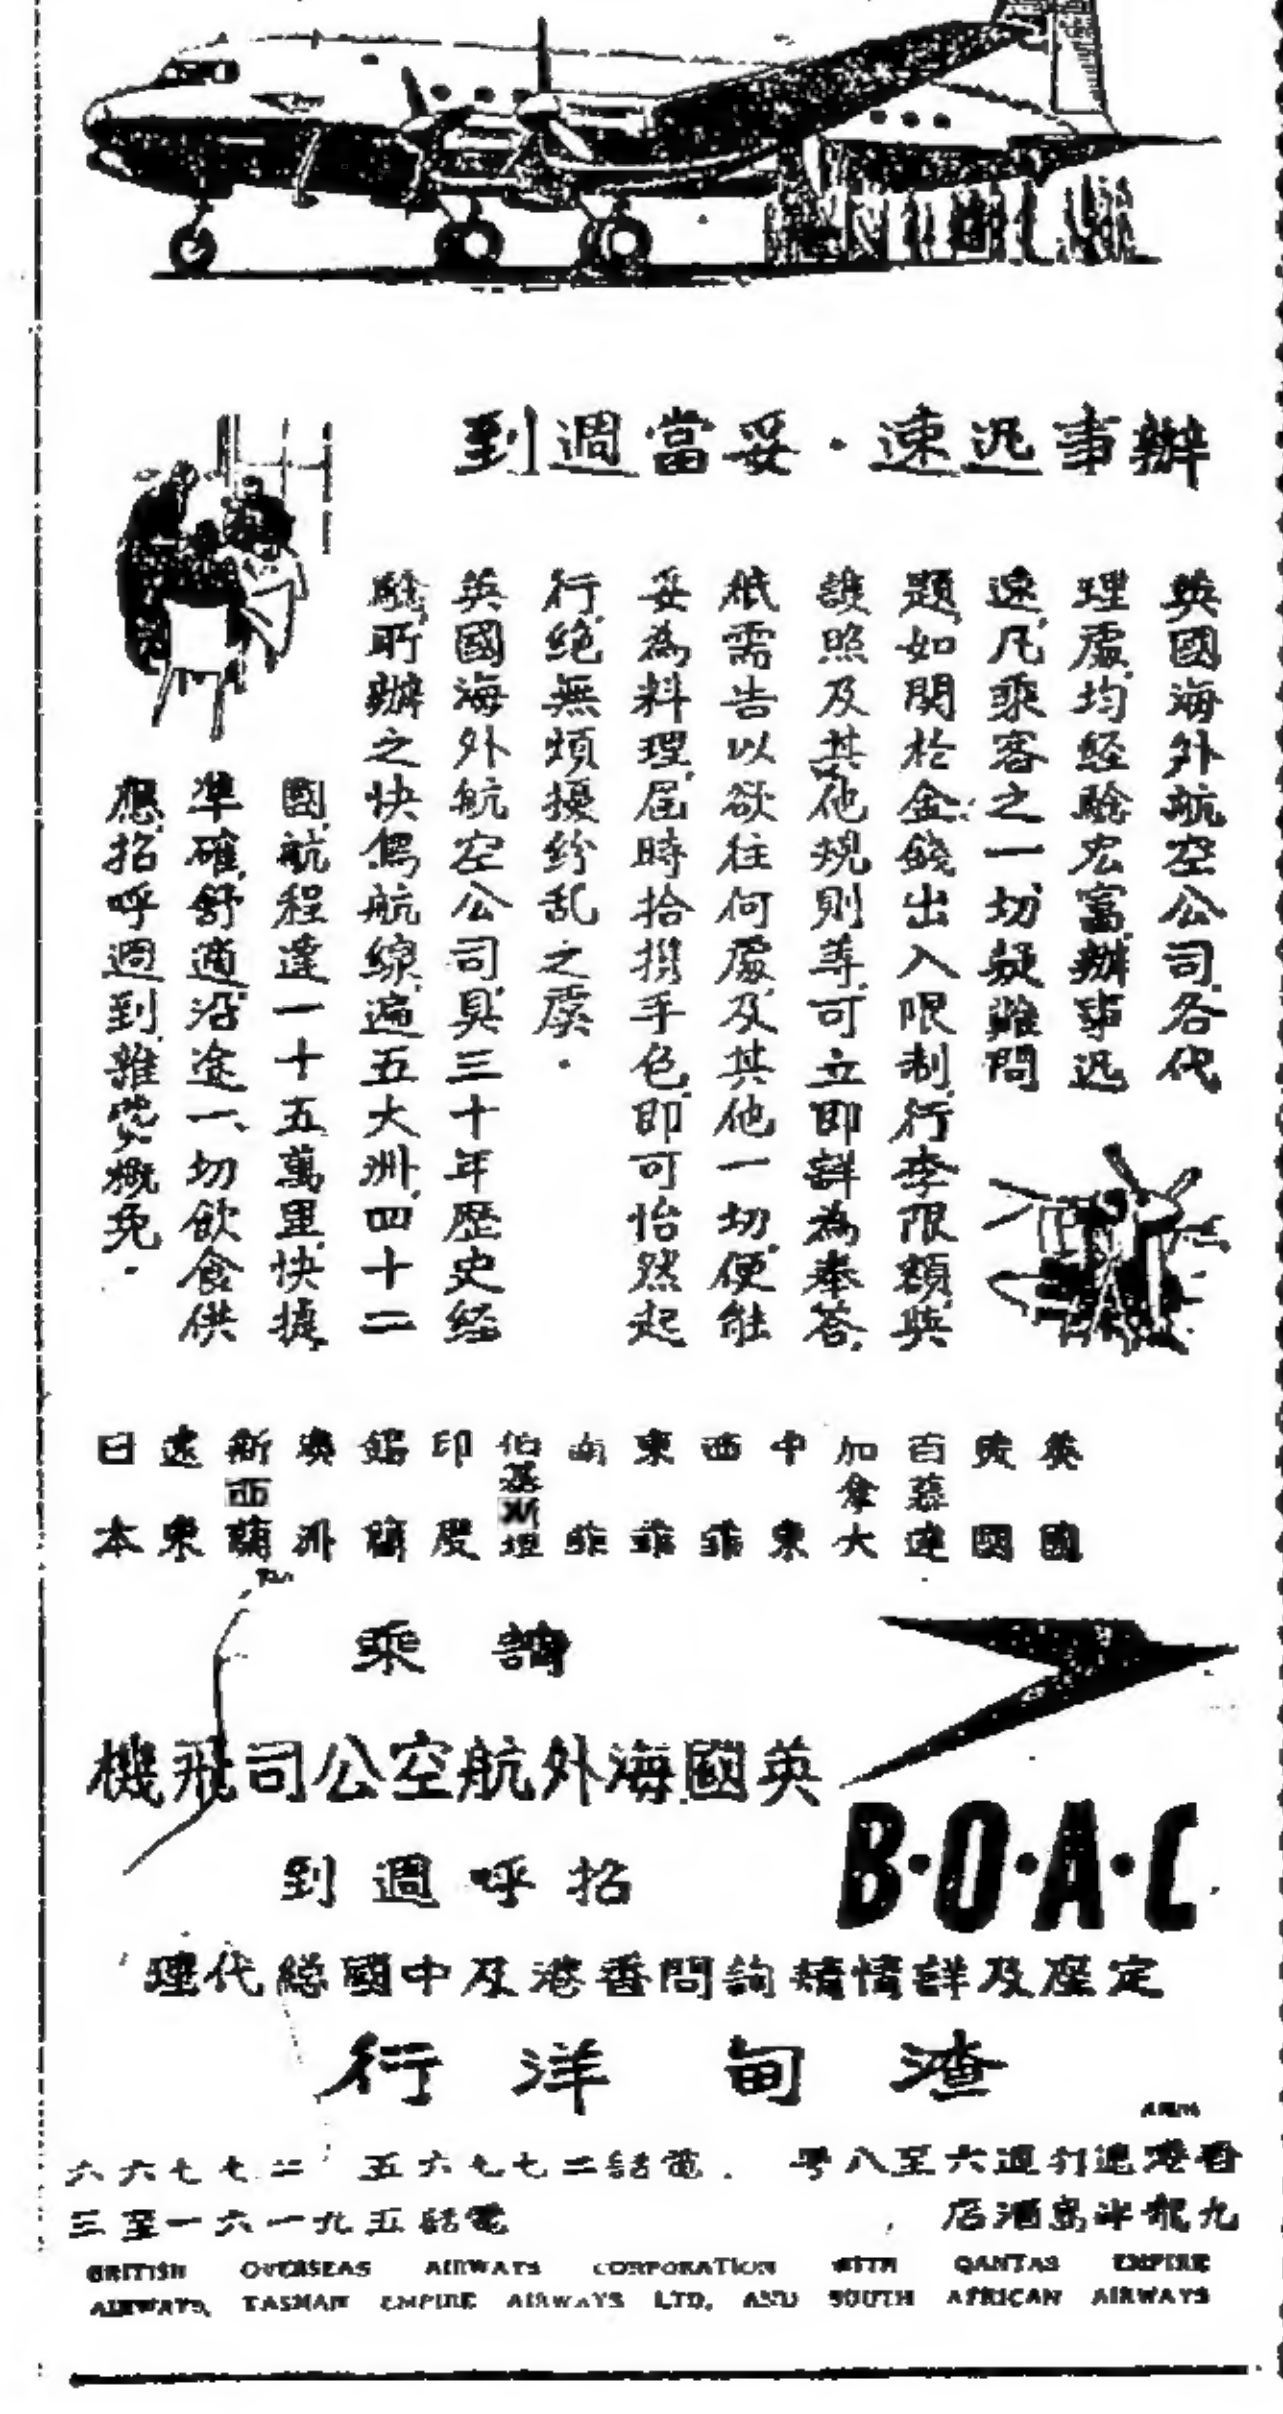 辦事迅速·妥當週到
英國海外航空公司各代
理處,均經驗宏富,辦事迅
速,凡乘客之一切疑難問
題,如關於金錢出入限制,行李限額,與
護照及其他規則等,可立即詳為奉答,
祇需告以欲往何處,及其他一切,便能
妥為料理,屆時拾擕手色,即可怡然起
行,絕無煩擾紛乱之虞·
英國海外航空公司,具三十年歷史經
驗,所辦之快儎航線,遍五大洲,四十二
國,航程達一十五萬里,快捷
準確,舒適,沿途一切飲食供
應,招呼週到,雜費概免·
英國
美國
百慕達
加拿大
中東
西菲
東菲
南菲
伯基斯坦
印度
錫蘭
澳洲
新西蘭
遠東
日本
請乘
英國海外航空公司飛機
招呼週到
B·O·A·C
定座及詳細情請詢問香港及中國總代理
渣甸洋行
香港遮打道六至八號·電話二七七六五 二七七六六
九龍半島酒店 電話五九一六一至三
BRITISH OVERSEAS AIRWAYS CORPORATION WITH QANTAS EMPIRE
AIRWAYS, TASMAN EMPIRE AIRWAYS LTD. AND SOUTH AFRICAN AIRWAYS